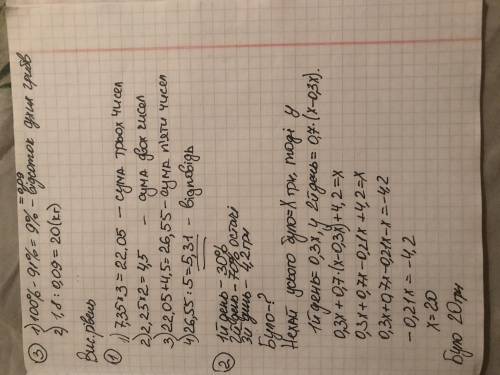 ③ 1) 100% - 91% = 9% - відсоток сухих грибів
= 0,09
2) 1,8 : 0,09 = 20 (кг)
Вис.рівень
① 1) 7,35 × 3 = 22,05 - сума трьох чисел
2) 2,25 × 2 = 4,5 - сума двох чисел
3) 22,05 + 4,5 = 26,55 - сума п'яти чисел
4) 26,55 : 5 = 5,31 - відповідь
② 1й день - 30%
2й день - 70% остачі
3й день - 4,2 грн
Було - ?
Нехай усього було = х грн, тоді у
1й день = 0,3х, у 2й день = 0,7 · (х-0,3х).
0,3х + 0,7 · (х-0,3х) + 4,2 = х
0,3х + 0,7х - 0,21х + 4,2 = х
0,3х + 0,7х - 0,21х - х = -4,2
- 0,21х = - 4,2
х = 20
Було 20 грн